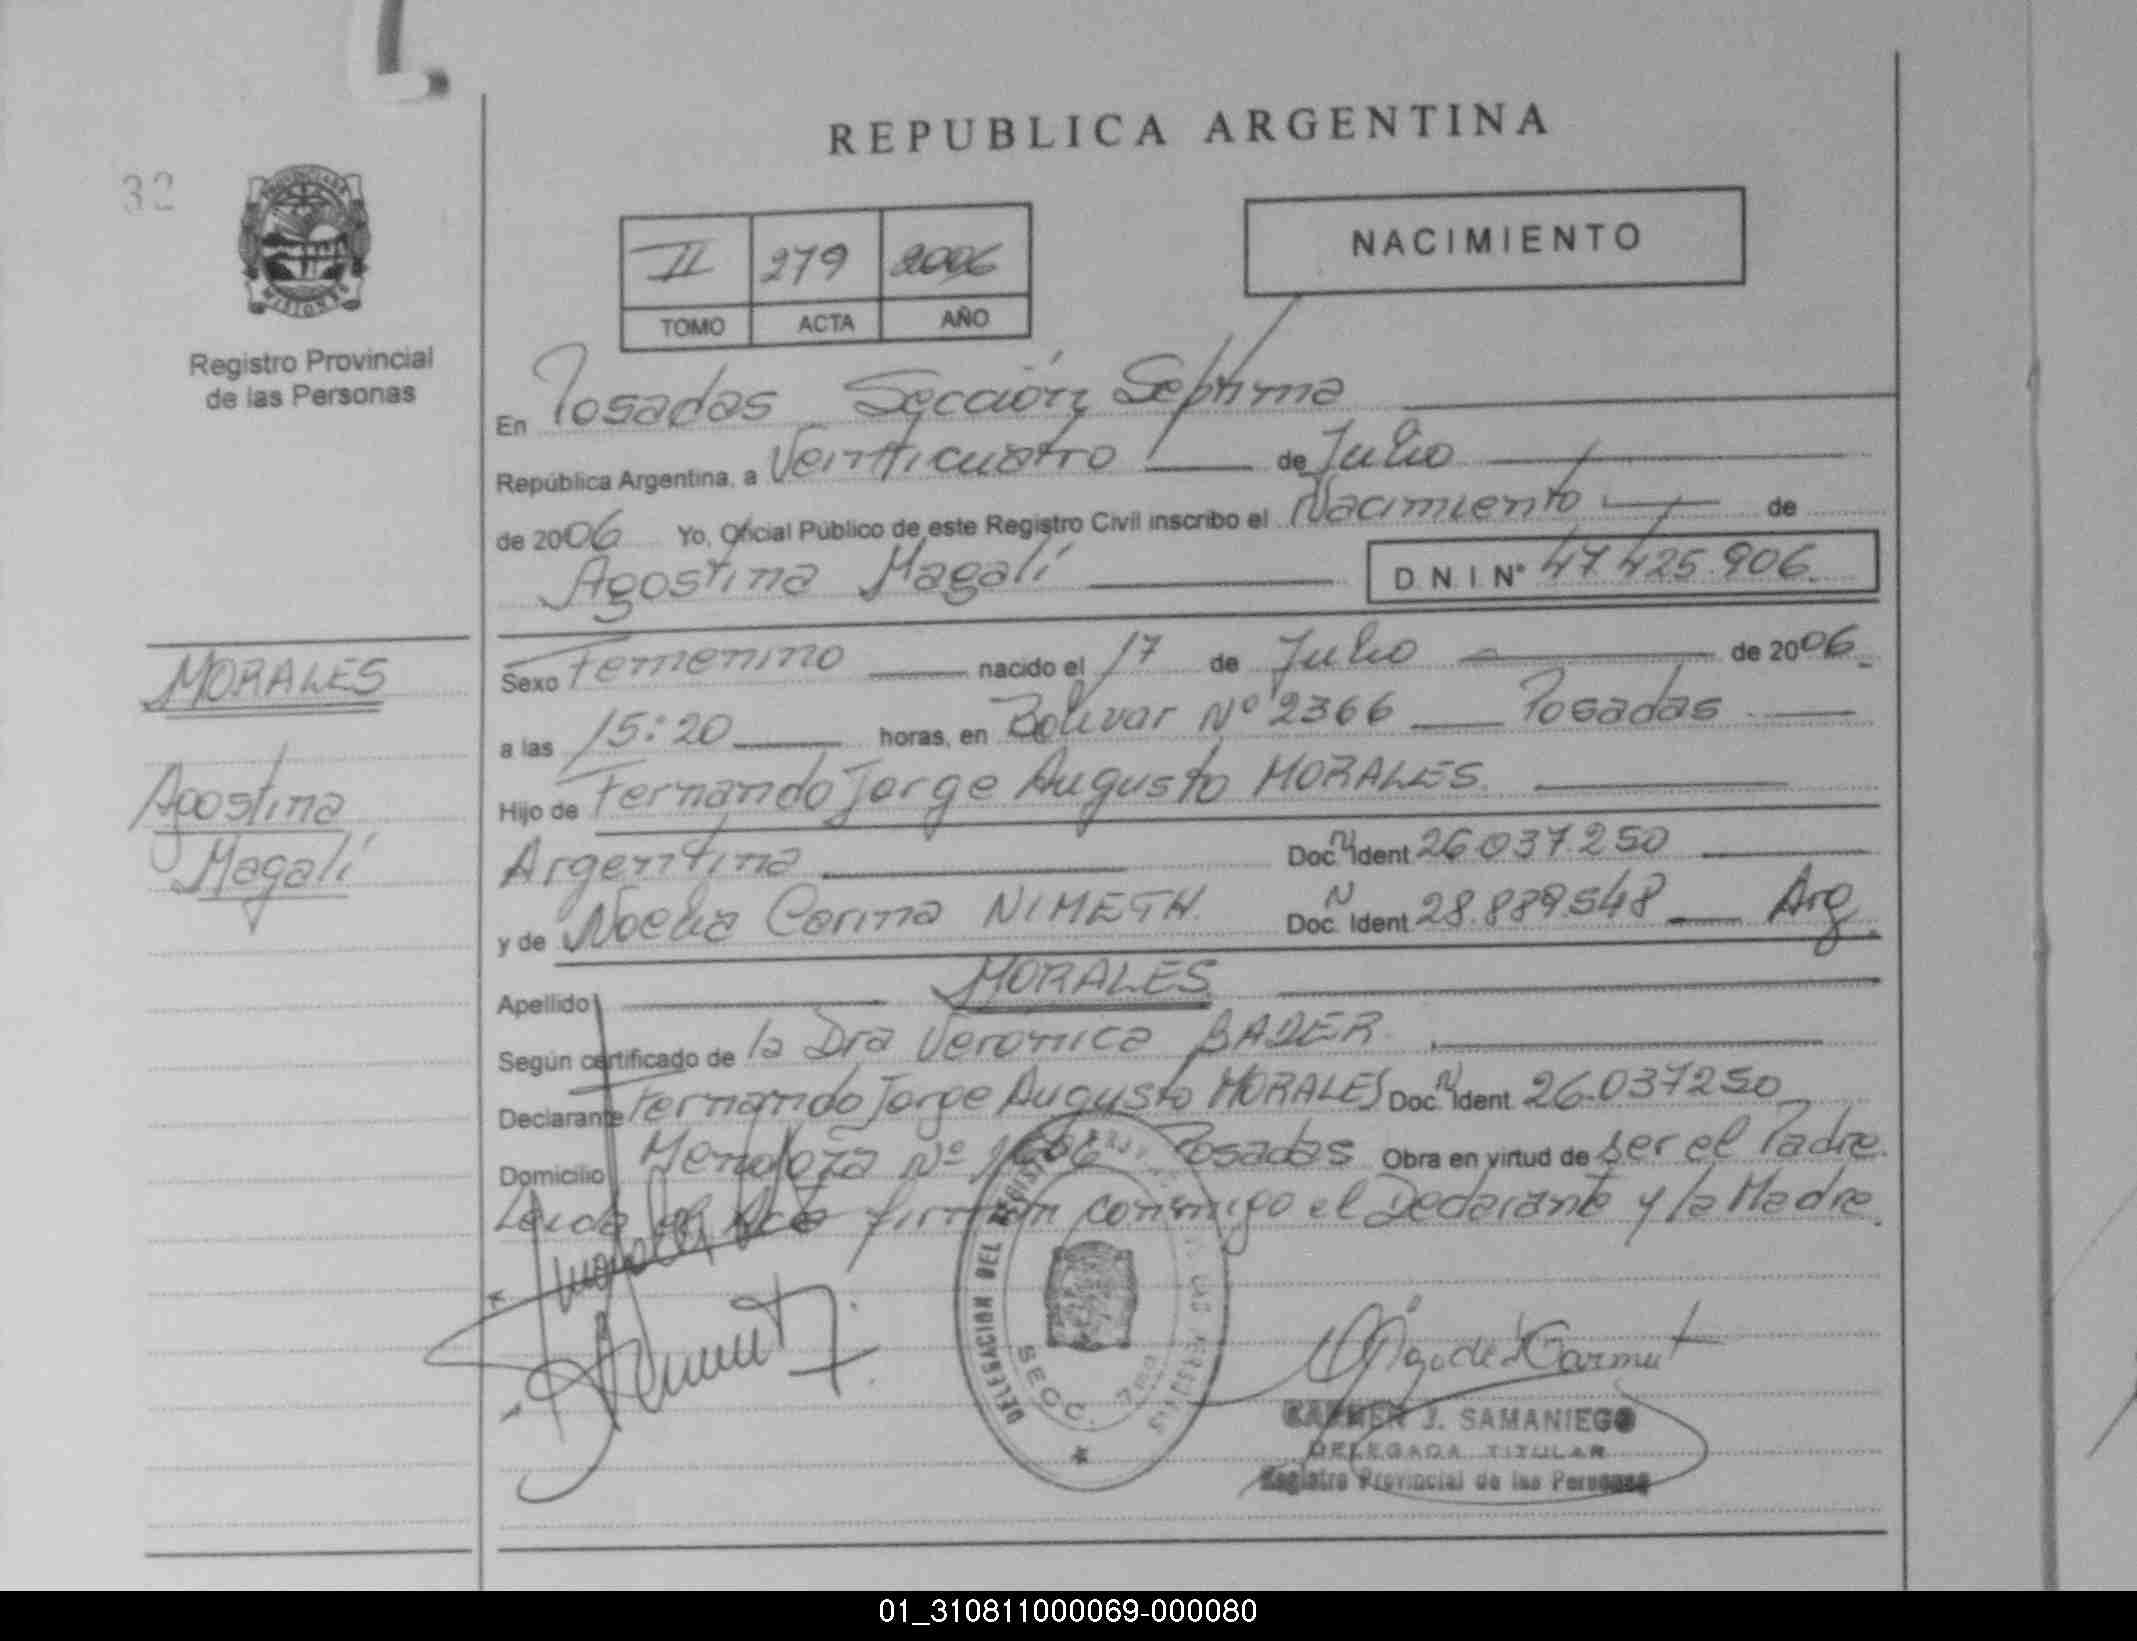 REPUBLICA ARGENTINA
32
PROVINCIA DE MISIONES
Registro Provincial
de las Personas
II 279 2006
TOMO ACTA AÑO
NACIMIENTO
En Posadas Sección Séptima
República Argentina, a Veinticuatro de Julio
de 2006 Yo, Oficial Público de este Registro Civil inscribo el Nacimiento de
Agostina Magalí D.N.I. Nº 47.425.906
MORALES
Agostina
Magalí
Sexo Femenino nacido el 17 de Julio de 2006
a las 15:20 horas, en Bolívar Nº 2366 Posadas
Hijo de Fernando Jorge Augusto MORALES
Argentina Doc. N Ident 26.037.250
y de Noelia Carina NIMETH Doc. N Ident 28.889.548 Arg.
Apellido MORALES
Según certificado de la Dra Veronica BADER
Declarante Fernando Jorge Augusto MORALES Doc. N Ident. 26.037250
Domicilio Mendoza Nº Posadas Obra en virtud de ser el Padre.
Leida el Acta firman conmigo el Declarante y la Madre.
DELEGACION DEL REGISTRO DE LAS PERSONAS
SECC. 7ma
CARMEN J. SAMANIEGO
DELEGADA TITULAR
Registro Provincial de las Personas
01_310811000069-000080